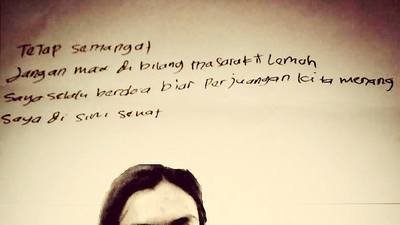 Tetap semangat
Jangan mau di bilang masarakat Lemah
Saya selalu berdoa biar Perjuangan kita menang
Saya di sini sehat